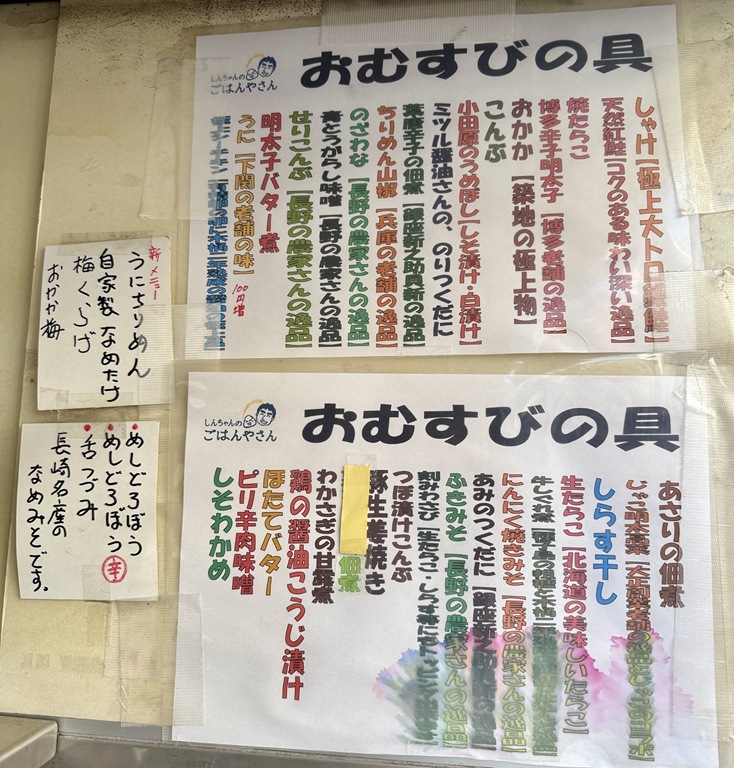 おむすびの具
しんちゃんの
ごはんやさん
しゃけ【極上大トロ
天然紅鮭【コクのある味わい深い逸品】
焼たらこ
博多辛子明太子【博多老舗の逸品】
おかか【築地の極上物】
こんぶ
小田原のうめぼし【しそ漬け・白漬け】
ミツル醤油さんの、のりつくだに
葉唐辛子の佃煮【銀座新之助貝新の逸品】
ちりめん山椒【兵庫の老舗の逸品】
のざわな【長野の農家さんの逸品】
青とうがらし味噌【長野の農家さんの逸品】
せりこんぶ【長野の農家さんの逸品】
明太子バター煮
うに【下関の老舗の味】
100円増
新メニュー
うにちりめん
自家製なめたけ
梅くらげ
おかか梅
おむすびの具
しんちゃんの
ごはんやさん
あさりの佃煮
しらす干し
生たらこ【北海道の美味しいたらこ】
にんにく焼きみそ【長野の農家さんの逸品】
あみのつくだに【銀座新之助貝新の逸品】
ふきみそ【長野の農家さんの逸品】
刻みわさび
つぼ漬けこんぶ
豚生姜焼き
佃煮
わかさぎの甘露煮
鶏の醤油こうじ漬け
ほたてバター
ピリ辛肉味噌
しそわかめ
めしどろぼう
めしどろぼう辛
舌つづみ
長崎名産の
なめみそです。